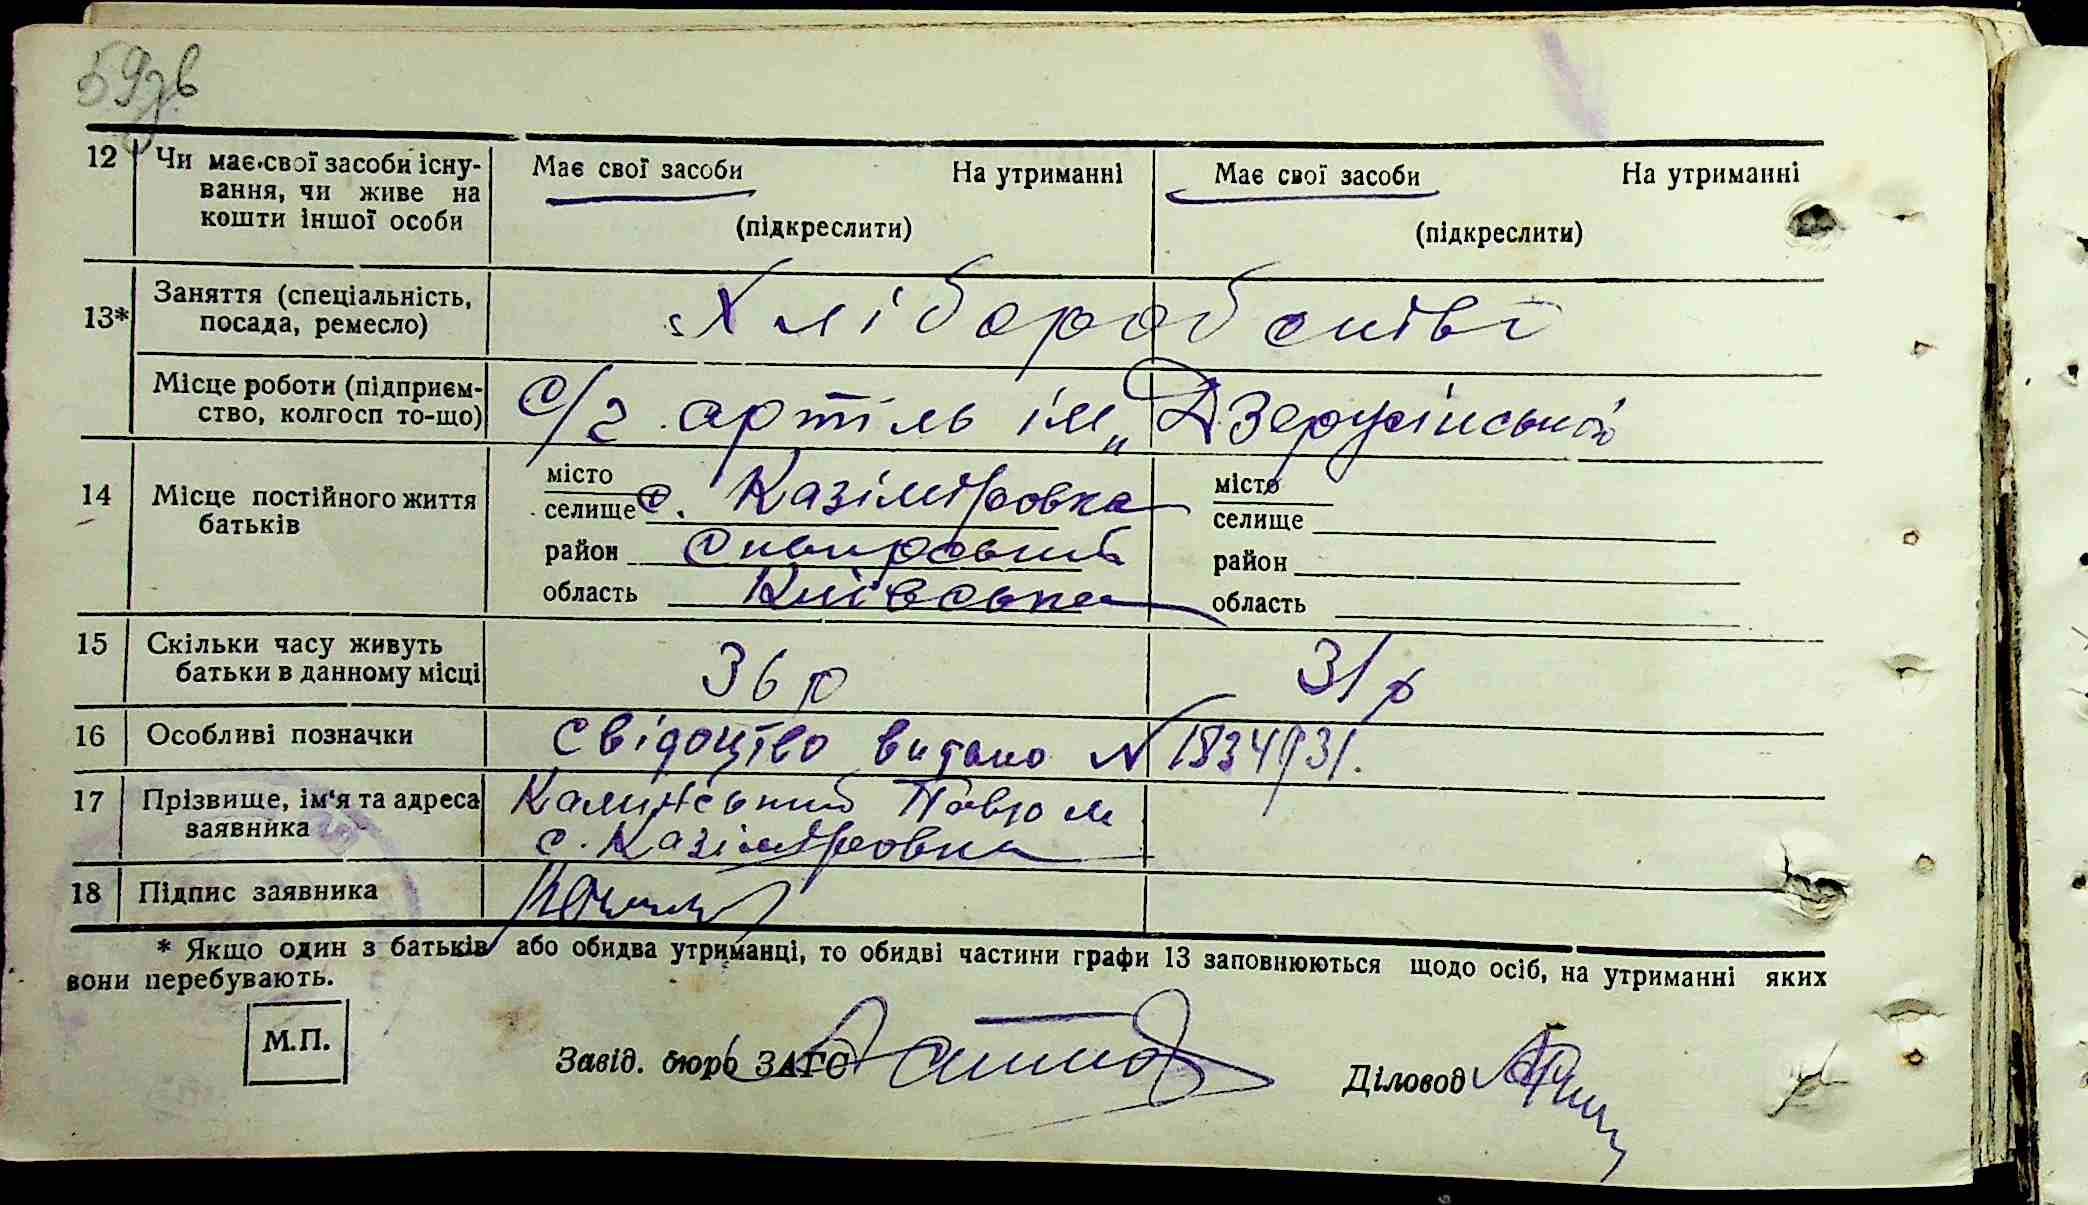 59зв
12 Чи має свої засоби існу-
вання, чи живе на
кошти іншої особи
Має свої засоби На утриманні
(підкреслити)
Має свої засоби На утриманні
(підкреслити)
13* Заняття (спеціальність,
посада, ремесло)
Хліборобство
Місце роботи (підприєм-
ство, колгосп то-що)
с/г артіль ім.
14 Місце постійного життя
батьків
місто
селище с. Казіміровка
район
область Київська
місто
селище
район
область
15 Скільки часу живуть
батьки в данному місці
36 р
31 р
16 Особливі позначки
Свідоцтво видано N 1834931.
17 Прізвище, ім'я та адреса
заявника
Калинський Павло
с. Казіміровка
18 Підпис заявника
* Якщо один з батьків або обидва утриманці, то обидві частини графи 13 заповнюються щодо осіб, на утриманні яких
вони перебувають.
М.П.
Завід. бюро ЗАГС
Діловод